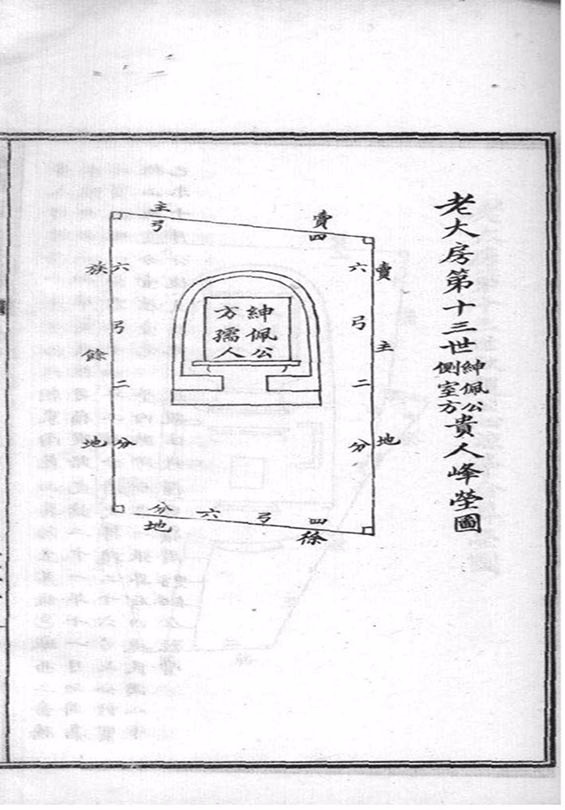 老大房第十三世紳佩公側室方貴人峰塋圖
賣主
四弓
賣主地
六弓二分
紳佩公
方孺人
六弓二分
族餘地
四弓六分
徐地